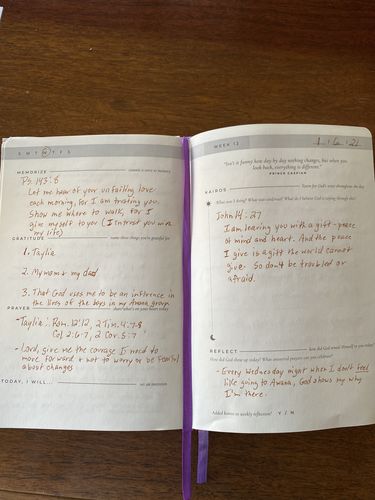 S M T W T F S
MEMORIZE
Ps. 143:8
Let me hear of your unfailing love
each morning, for I am trusting you.
Show me where to walk, for I
give myself to you (I intrust you w/ my life)
GRATITUDE
name three things you're grateful for
1. Taylia
2. My mom & my dad
3. That God uses me to be an influence in
the lives of the boys in my Awana group
PRAYER
what's on your heart today
- Taylia: Rom. 12:12, 2 Tim. 4:7-8
Col 2:6-7, 2 Cor. 5:7
- Lord, give me the courage I need to
move forward & not to worry or be fearful
about changes
TODAY, I WILL...
set an intention
WEEK 12
"Isn't it funny how day by day nothing changes, but when you
look back, everything is different."
PRINCE CASPIAN
KAIROS
John 14:27
I am leaving you with a gift - peace
of mind and heart. And the peace
I give is a gift the world cannot
give. So don't be troubled or
afraid.
REFLECT
how did God reveal Himself to you today?
How did God show up today? What answered prayers can you celebrate?
- Every Wednesday night when I don't feel
like going to Awana, God shows my why
I'm there.
Added honor to weekly reflection? Y / N